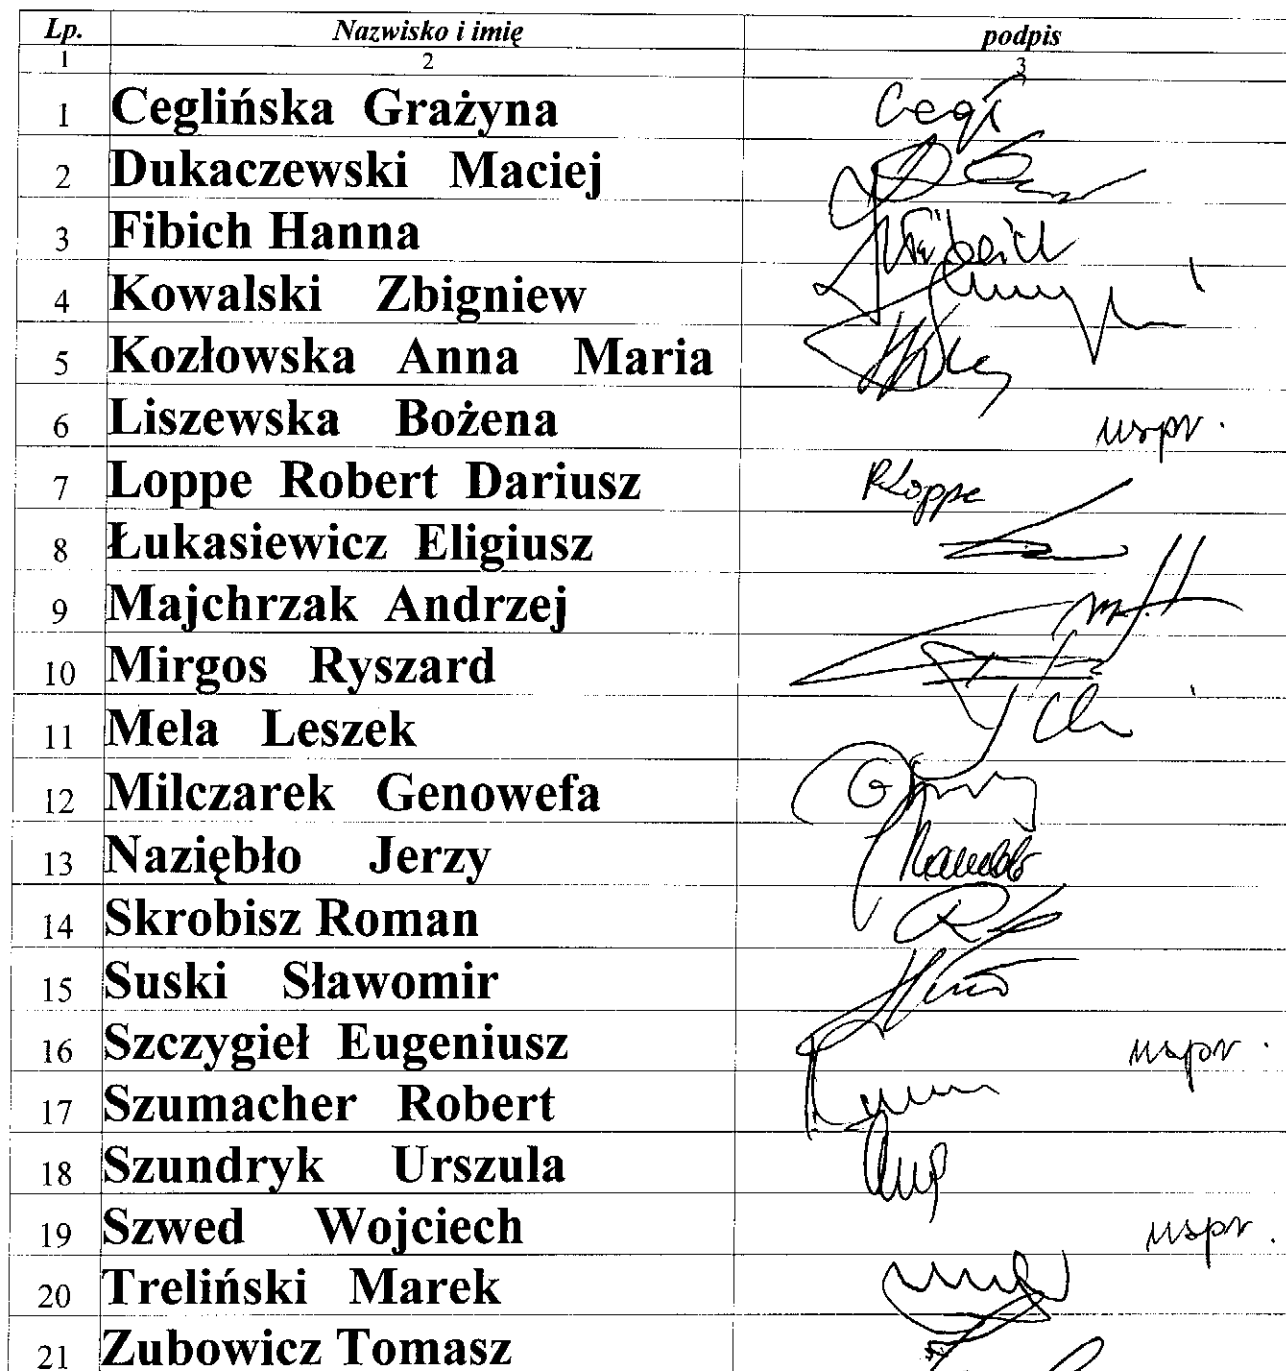 Lp. Nazwisko i imię podpis
1 2 3
1 Ceglińska Grażyna Cegł
2 Dukaczewski Maciej
3 Fibich Hanna
4 Kowalski Zbigniew
5 Kozłowska Anna Maria
6 Liszewska Bożena uspr.
7 Loppe Robert Dariusz RLoppe
8 Łukasiewicz Eligiusz
9 Majchrzak Andrzej
10 Mirgos Ryszard
11 Mela Leszek
12 Milczarek Genowefa
13 Naziębło Jerzy
14 Skrobisz Roman
15 Suski Sławomir
16 Szczygieł Eugeniusz uspr.
17 Szumacher Robert
18 Szundryk Urszula
19 Szwed Wojciech uspr.
20 Treliński Marek
21 Zubowicz Tomasz